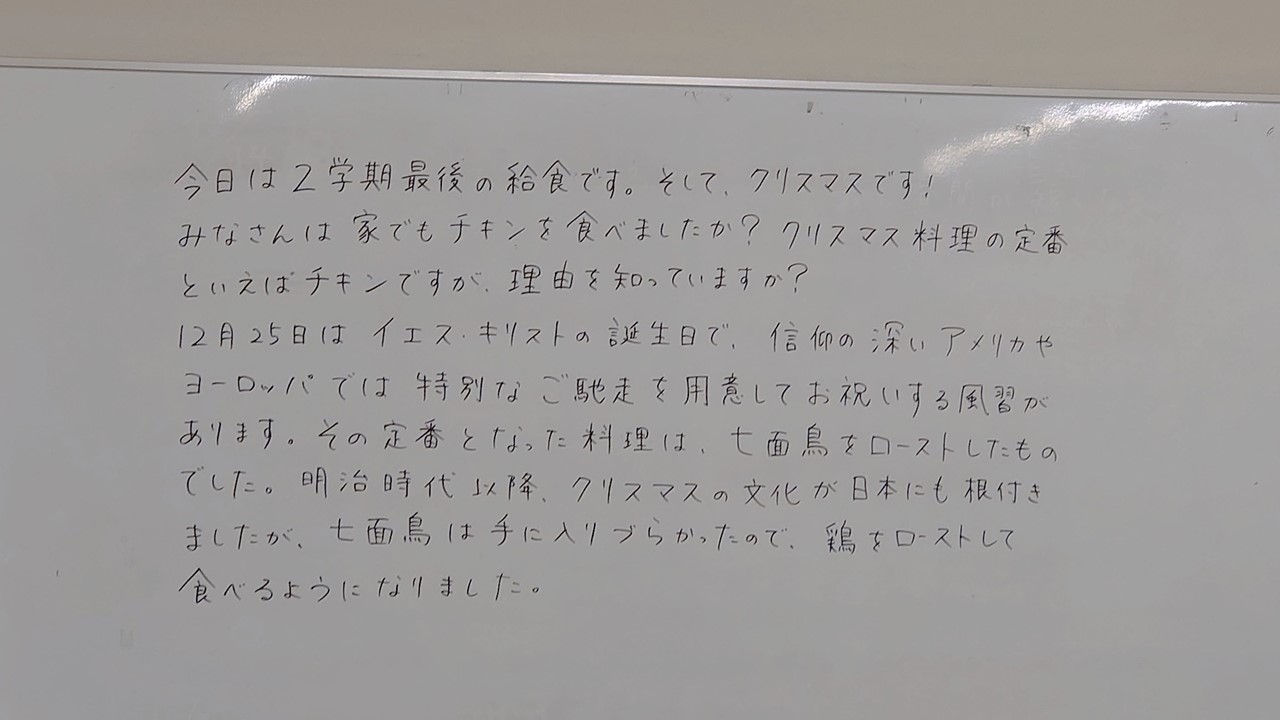 今日は2学期最後の給食です。そして、クリスマスです!
みなさんは家でもチキンを食べましたか?クリスマス料理の定番
といえばチキンですが、理由を知っていますか?
12月25日はイエス・キリストの誕生日で、信仰の深いアメリカや
ヨーロッパでは特別なご馳走を用意してお祝いする風習が
あります。その定番となった料理は、七面鳥をローストしたもの
でした。明治時代以降、クリスマスの文化が日本にも根付き
ましたが、七面鳥は手に入りづらかったので、鶏をローストして
食べるようになりました。